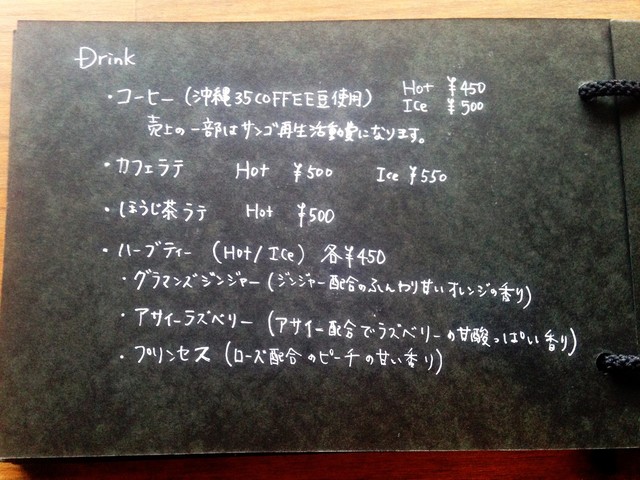 Drink
・コーヒー (沖縄35COFFEE豆使用) Hot ¥450
Ice ¥500
売上の一部はサンゴ再生活動費になります。
・カフェラテ Hot ¥500 Ice ¥550
・ほうじ茶ラテ Hot ¥500
・ハーブティー (Hot/Ice) 各¥450
・グラマンズジンジャー (ジンジャー配合のふんわり甘いオレンジの香り)
・アサイーラズベリー (アサイー配合でラズベリーの甘酸っぱい香り)
・プリンセス (ローズ配合のピーチの甘い香り)